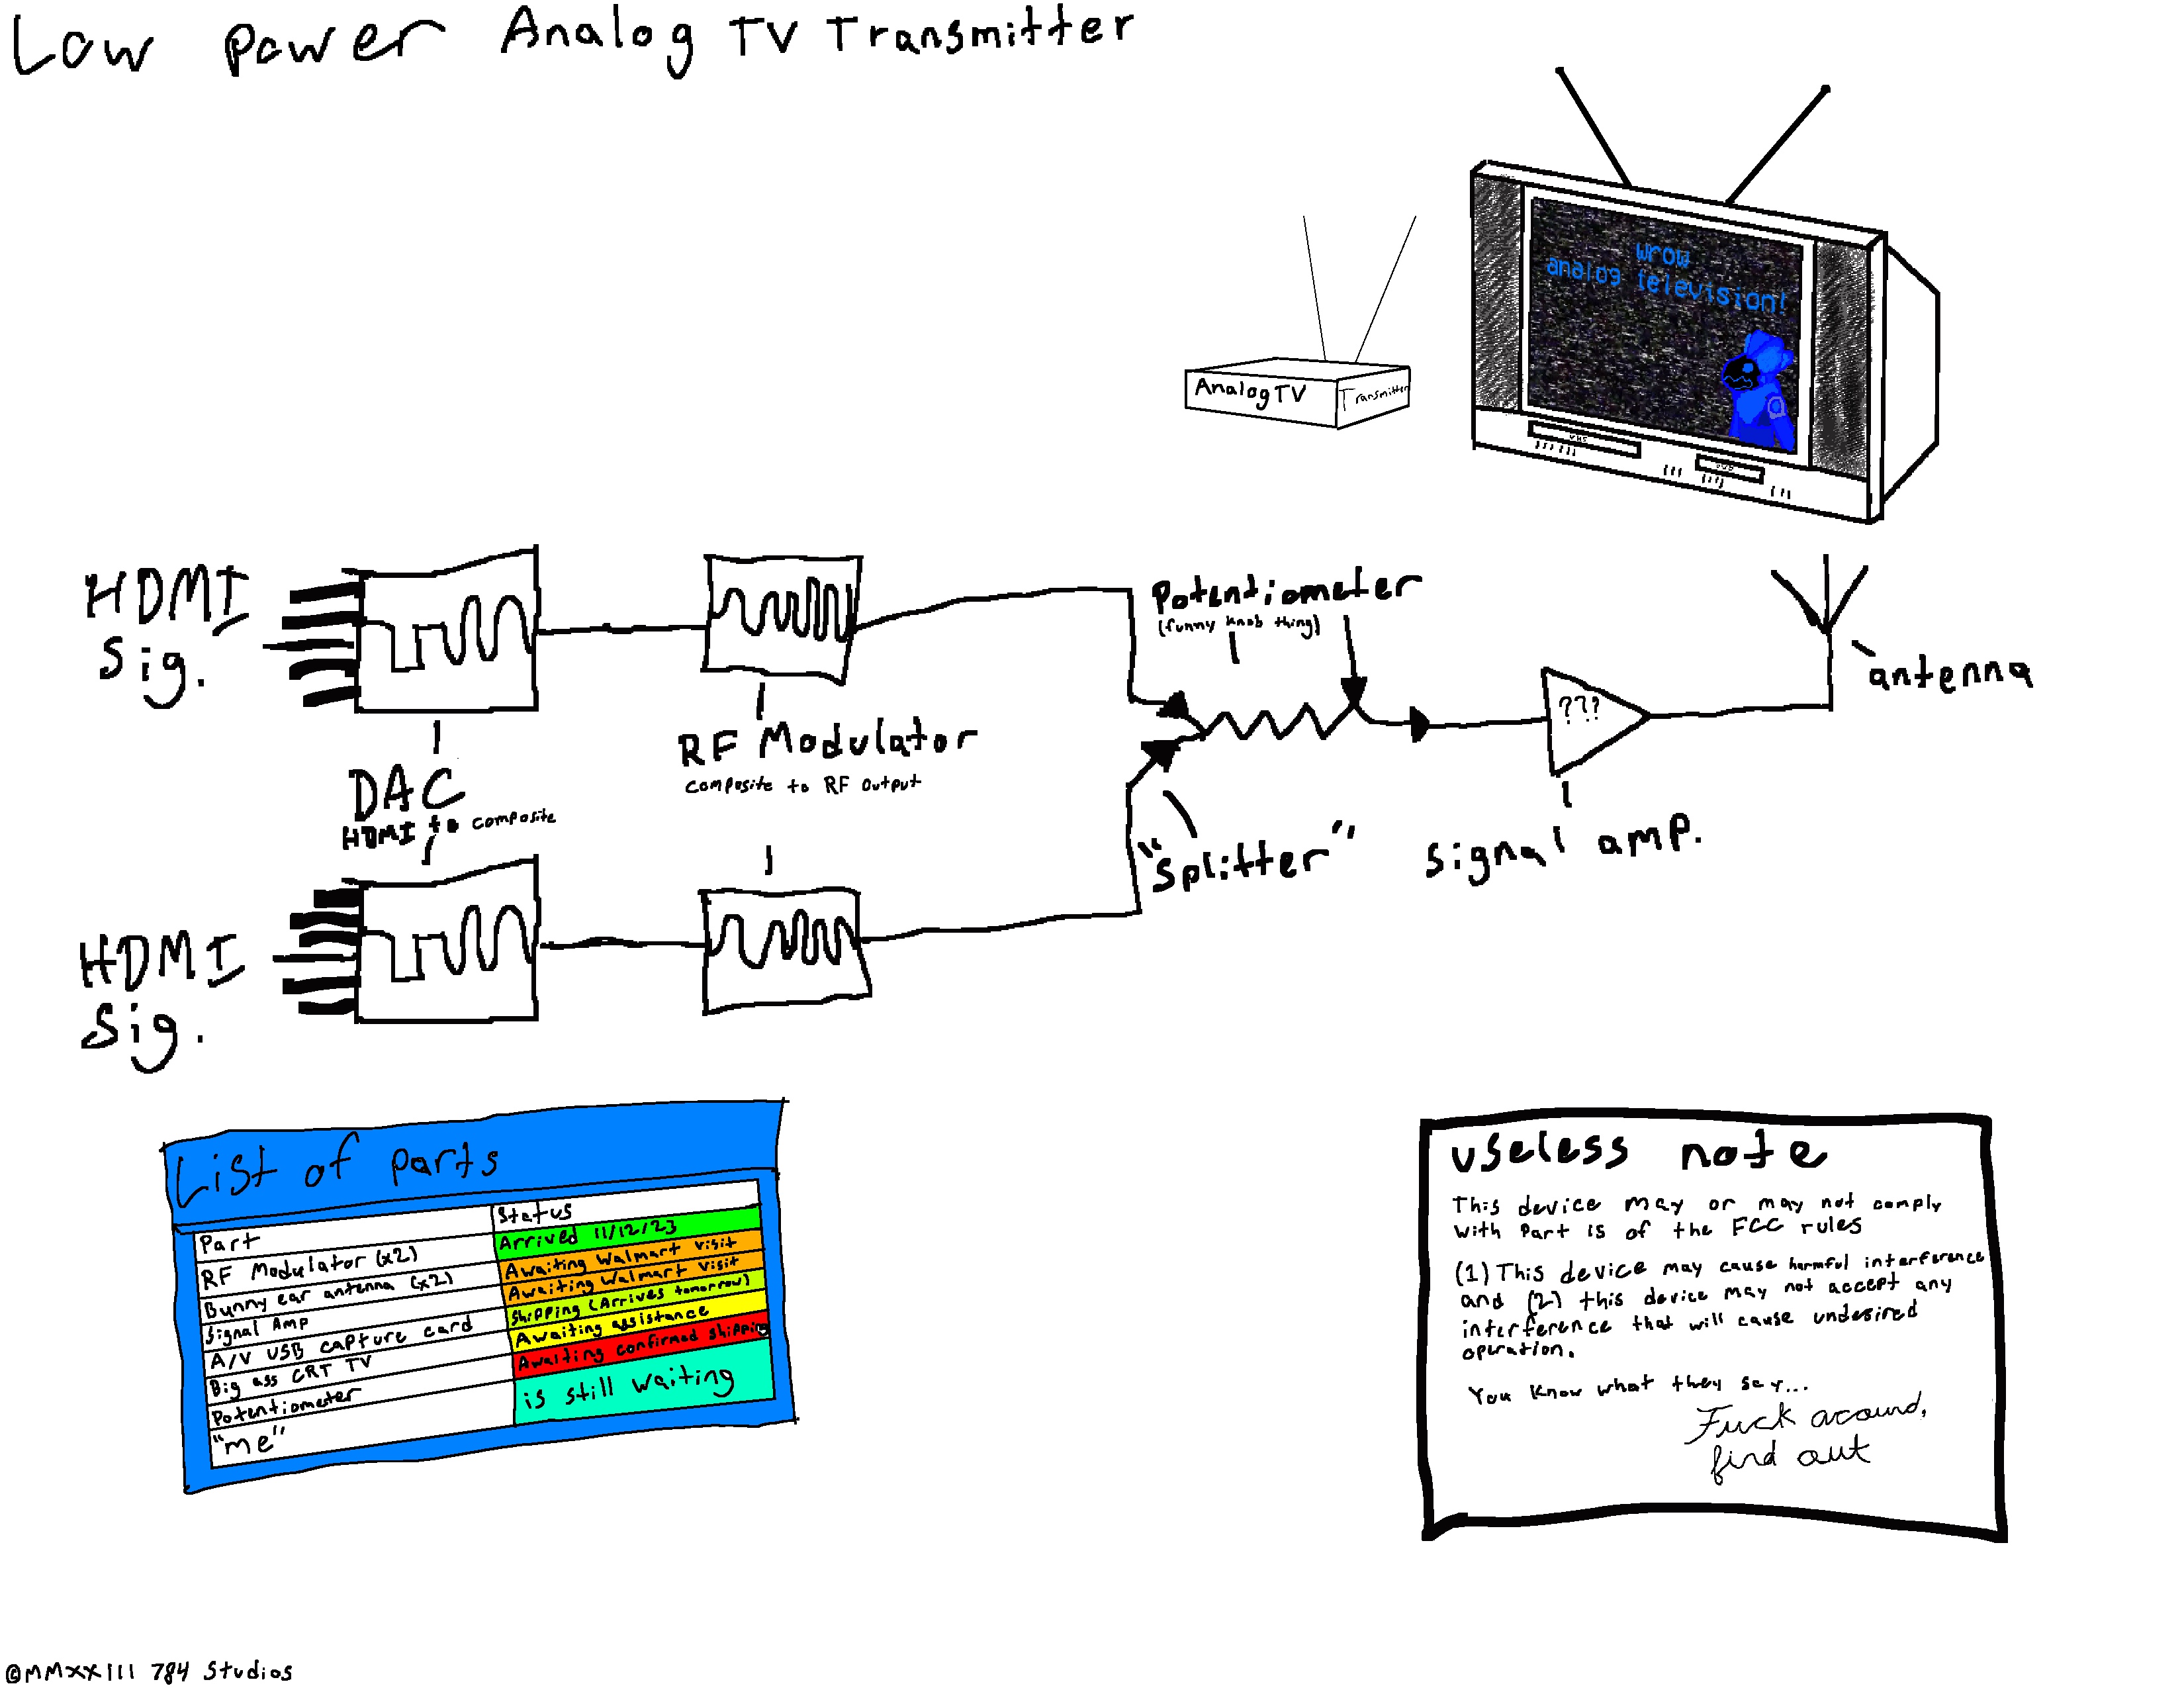 Low power Analog TV Transmitter
wrow
analog television!
Analog TV Transmitter
VHS
DVD
HDMI
sig.
DAC
HDMI to composite
RF Modulator
composite to RF output
Potentiometer
(funny knob thing)
"splitter"
???
signal amp.
antenna
HDMI
sig.
List of parts
Part Status
RF Modulator (x2) Arrived 11/12/23
Bunny ear antenna (x2) Awaiting Walmart visit
Signal Amp Awaiting Walmart visit
A/V USB capture card Shipping (Arrives tomorrow)
Big ass CRT TV Awaiting assistance
Potentiometer Awaiting confirmed shipping
"me" is still waiting
useless note
This device may or may not comply
with Part 15 of the FCC rules
(1) This device may cause harmful interference
and (2) this device may not accept any
interference that will cause undesired
operation.
You know what they say...
Fuck around,
find out
©MMXXIII 784 Studios